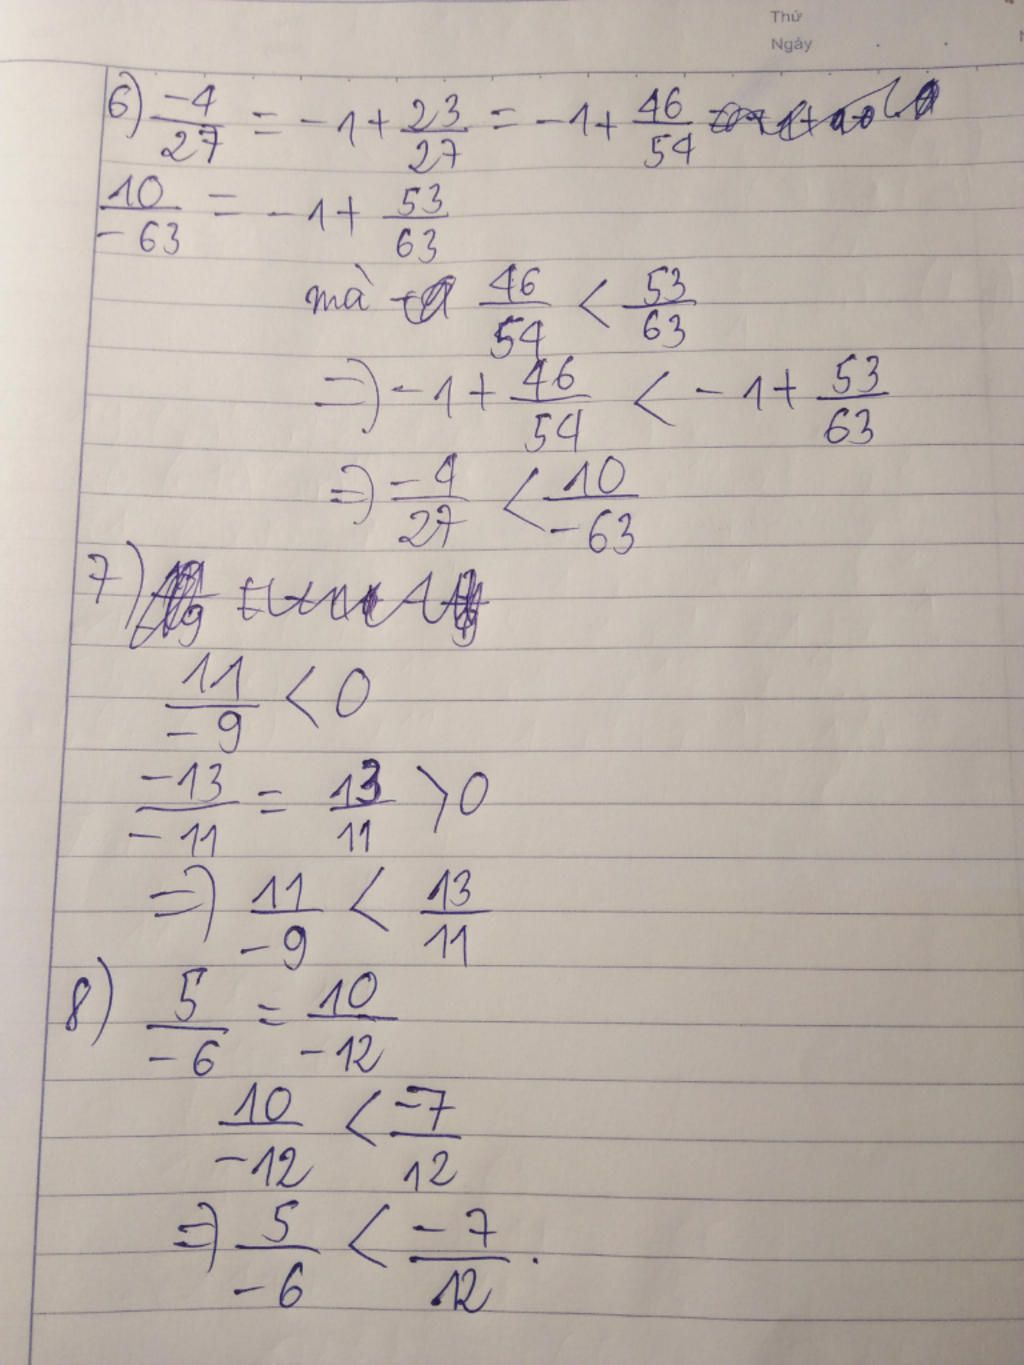 Thứ
Ngày
6) -4/27 = -1 + 23/27 = -1 + 46/54
10/-63 = -1 + 53/63
mà 46/54 < 53/63
=> -1 + 46/54 < -1 + 53/63
=> -4/27 < 10/-63
7)
11/-9 < 0
-13/-11 = 13/11 > 0
=> 11/-9 < 13/11
8) 5/-6 = 10/-12
10/-12 < -7/12
=> 5/-6 < -7/12.